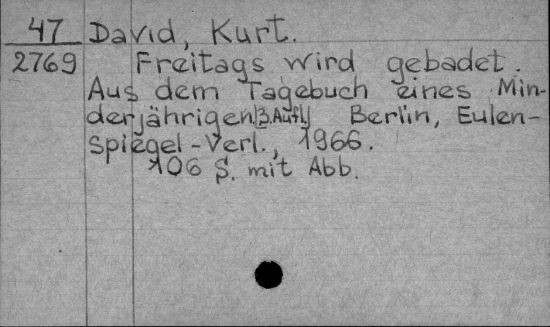 47 David, Kurt.
2769 Freitags wird gebadet.
Aus dem Tagebuch eines Min-
derjährigen [3. Aufl.] Berlin, Eulen-
spiegel-Verl., 1966.
106 S. mit Abb.